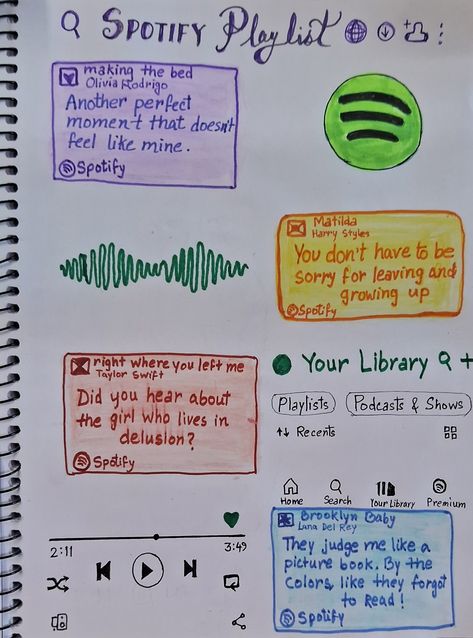 SPOTIFY Playlist
making the bed
Olivia Rodrigo
Another perfect
moment that doesn't
feel like mine.
Spotify
Matilda
Harry Styles
You don't have to be
sorry for leaving and
growing up
Spotify
right where you left me
Taylor Swift
Did you hear about
the girl who lives in
delusion?
Spotify
Your Library
Playlists
Podcasts & Shows
Recents
Home
Search
Your Library
Premium
2:11
3:49
Brooklyn Baby
Lana Del Rey
They judge me like a
picture book. By the
Colors, like they forgot
to Read!
Spotify